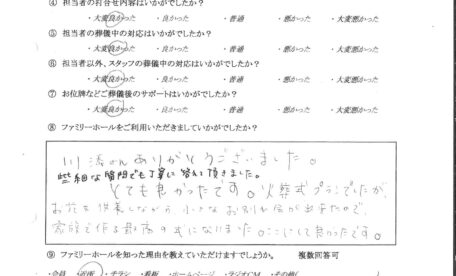 ④ 担当者の打合せ内容はいかがでしたか？
・大変良かった ・良かった ・普通 ・悪かった ・大変悪かった
⑤ 担当者の葬儀中の対応はいかがでしたか？
・大変良かった ・良かった ・普通 ・悪かった ・大変悪かった
⑥ 担当者以外、スタッフの葬儀中の対応はいかがでしたか？
・大変良かった ・良かった ・普通 ・悪かった ・大変悪かった
⑦ お位牌などご葬儀後のサポートはいかがでしたか？
・大変良かった ・良かった ・普通 ・悪かった ・大変悪かった
⑧ ファミリーホールをご利用いただきましていかがでしたか？
川添さんありがとうございました。
些細な質問でも丁寧に答えて頂きました。
とても良かったです。火葬式プランでしたが、
お花を供養しながら 小さなお別れ会が出来たので、
家族で作る最高の式になりました。ここにして良かったです。
⑨ ファミリーホールを知った理由を教えていただけますでしょうか。 複数回答可
・会員 ・近所 ・チラシ ・看板 ・ホームページ ・ラジオCM ・その他(